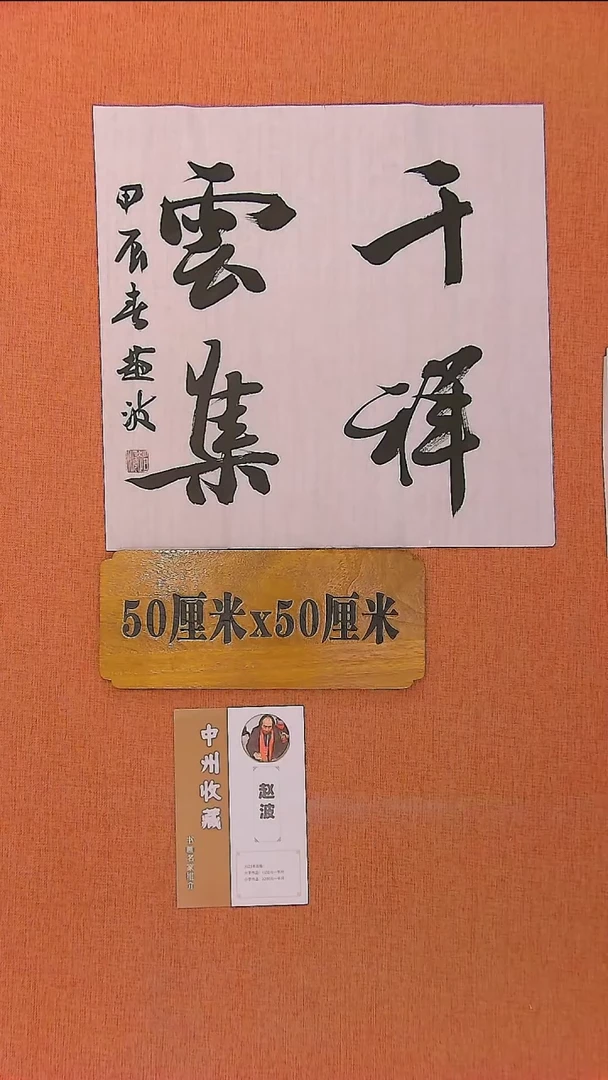 千祥
雲集
甲辰春赵波
50厘米x50厘米
中州收藏
书画名家推介
赵波